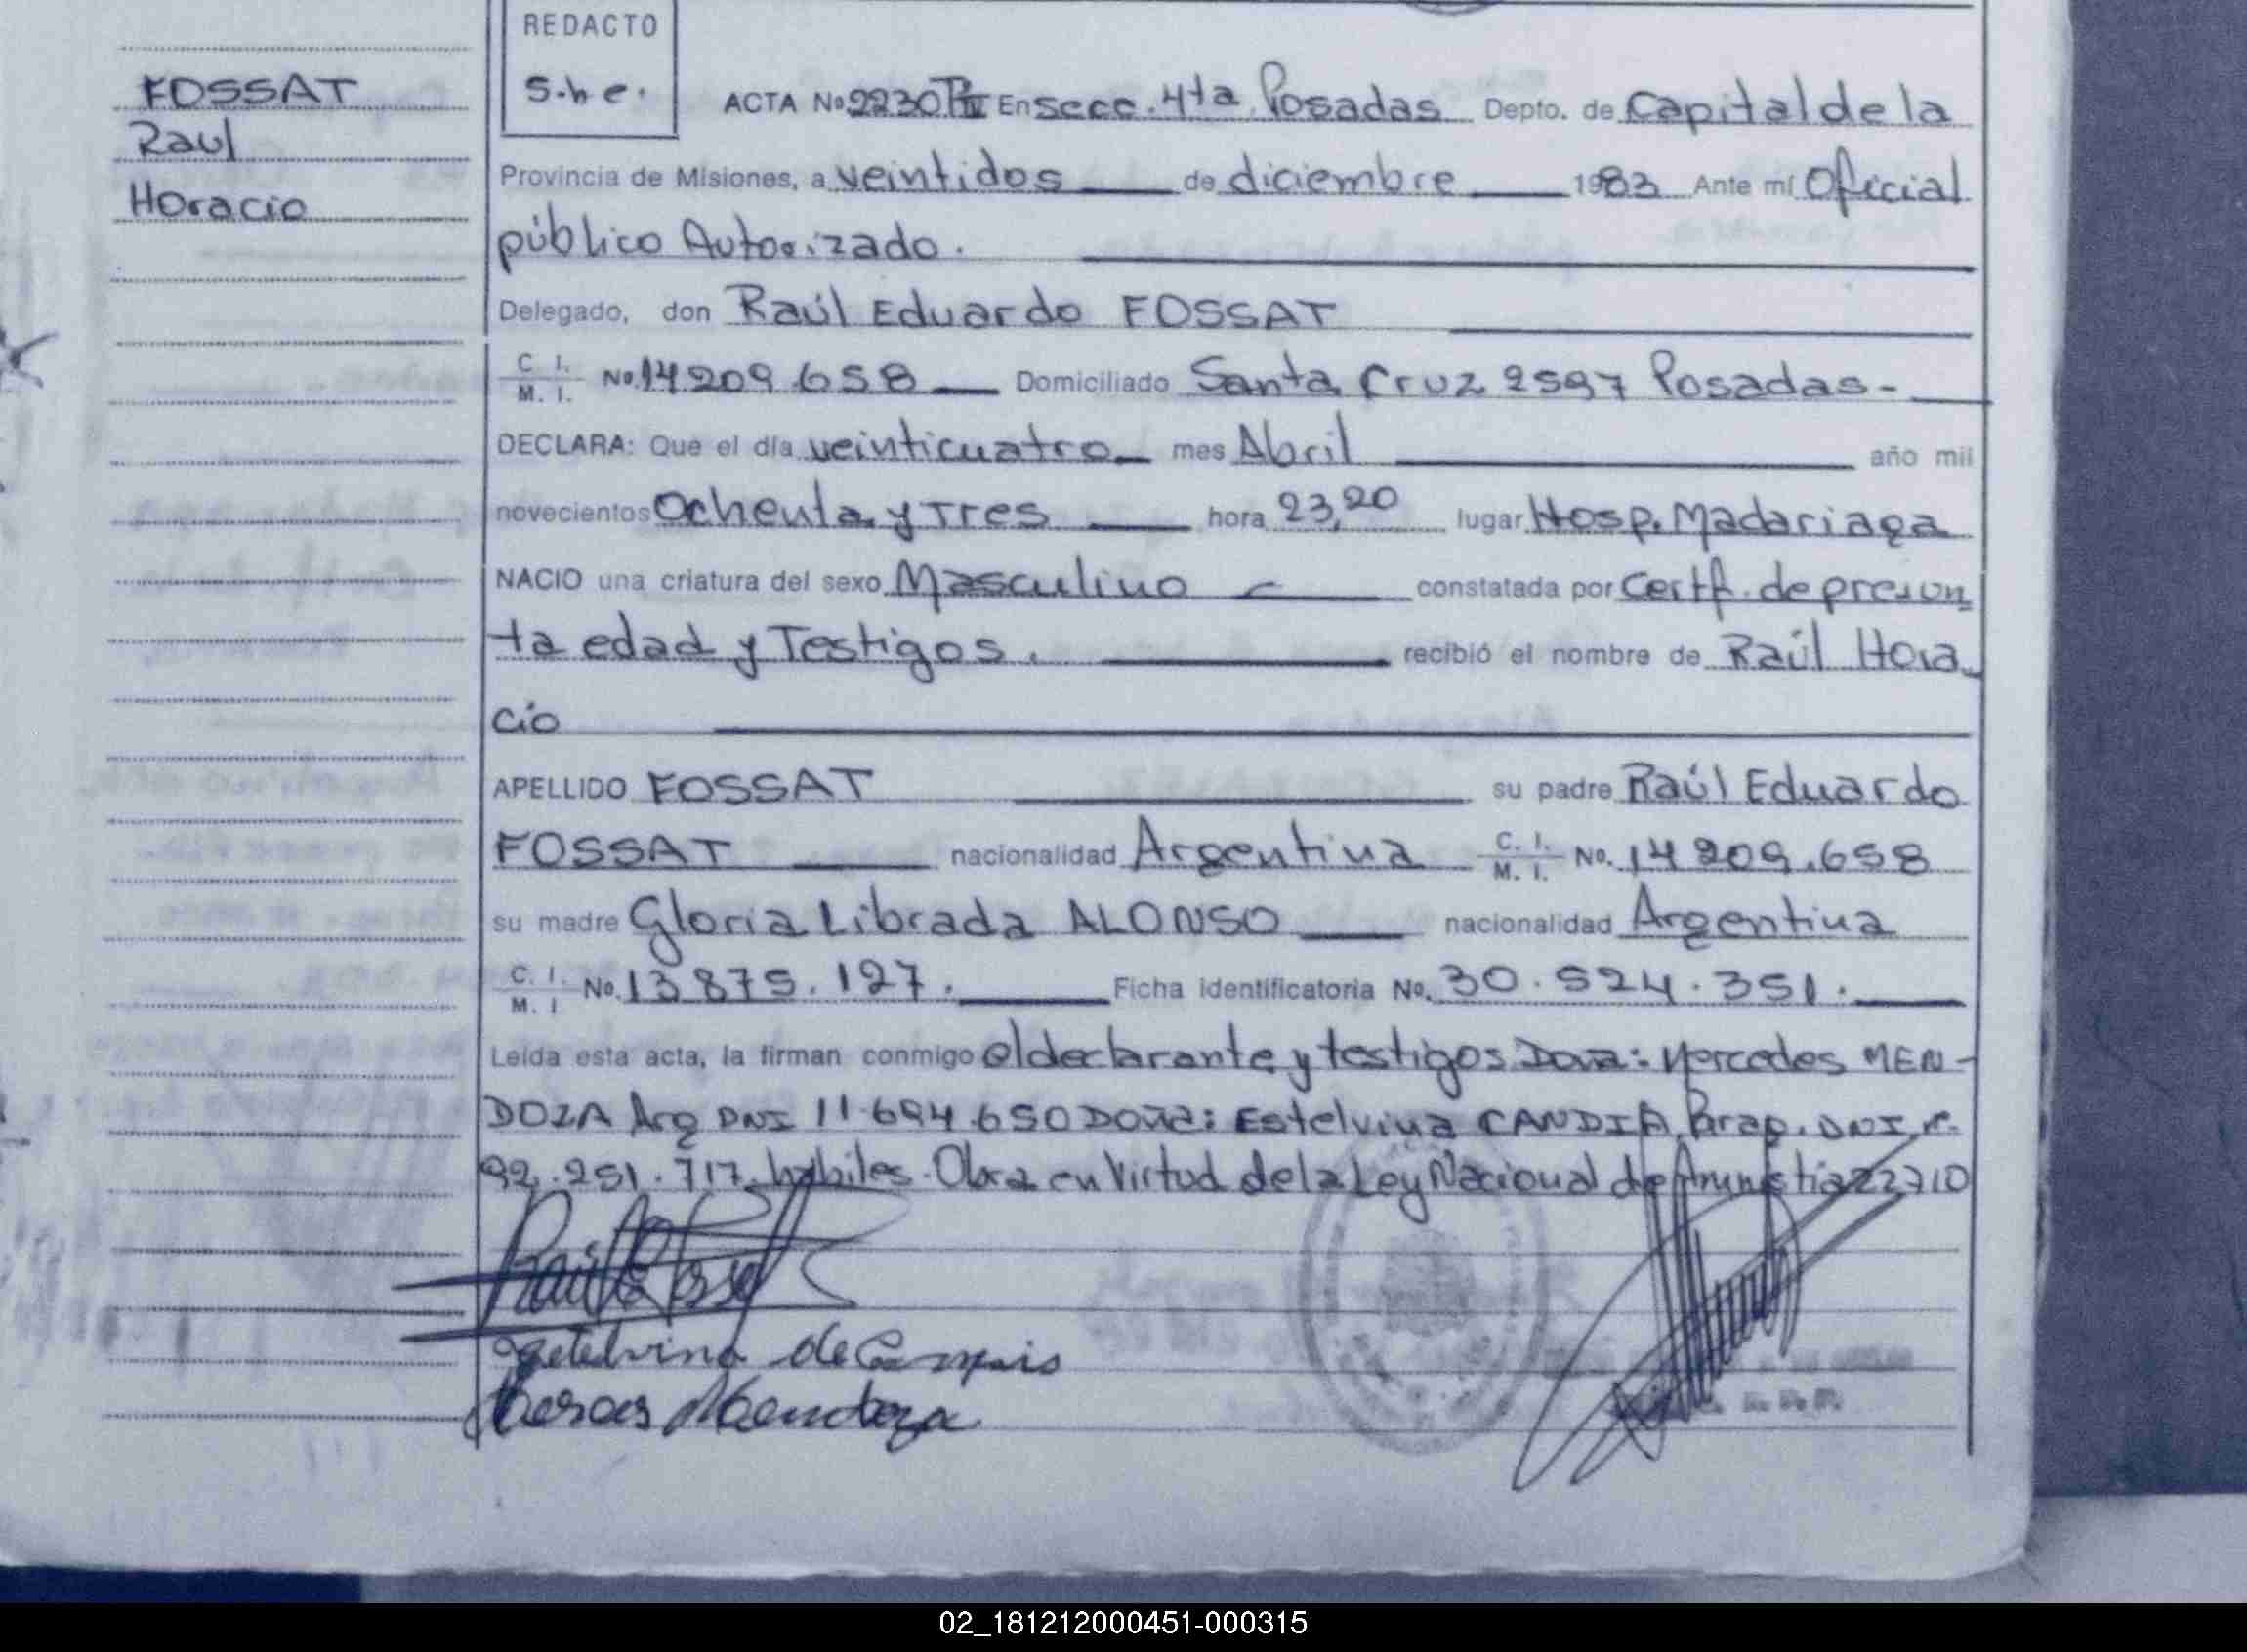 REDACTO
S.h e.
FOSSAT
Raul
Horacio
ACTA No 2230 TII En Secc. 4ta Posadas Depto. de Capital de la
Provincia de Misiones, a veintidos de diciembre 1983 Ante mí Oficial
público Autorizado.
Delegado, don Raúl Eduardo FOSSAT
C. I. M. I. No. 14 209.658 Domiciliado Santa Cruz 2597 Posadas-
DECLARA: Que el día veinticuatro mes Abril año mil
novecientos Ochenta y Tres hora 23,20 lugar Hosp. Madariaga
NACIO una criatura del sexo Masculino constatada por Certf. de presun
ta edad y Testigos. recibió el nombre de Raúl Hora
cio
APELLIDO FOSSAT su padre Raúl Eduardo
FOSSAT nacionalidad Argentina C. I. M. I. No. 14 209.658
su madre Gloria Librada ALONSO nacionalidad Argentina
C. I. M. I No. 13 875.127. Ficha identificatoria No. 30.524.351.
Leída esta acta, la firman conmigo el declarante y testigos Doña: Mercedes MEN-
DOZA Arg DNI 11.694.650 Doña: Estelvina CANDIA, Parag. DNI
92.251.717. habiles. Obra en Virtud de la Ley Nacional de Amnistia 22710
Estelvina de Campis
Mendoza
02_181212000451-000315